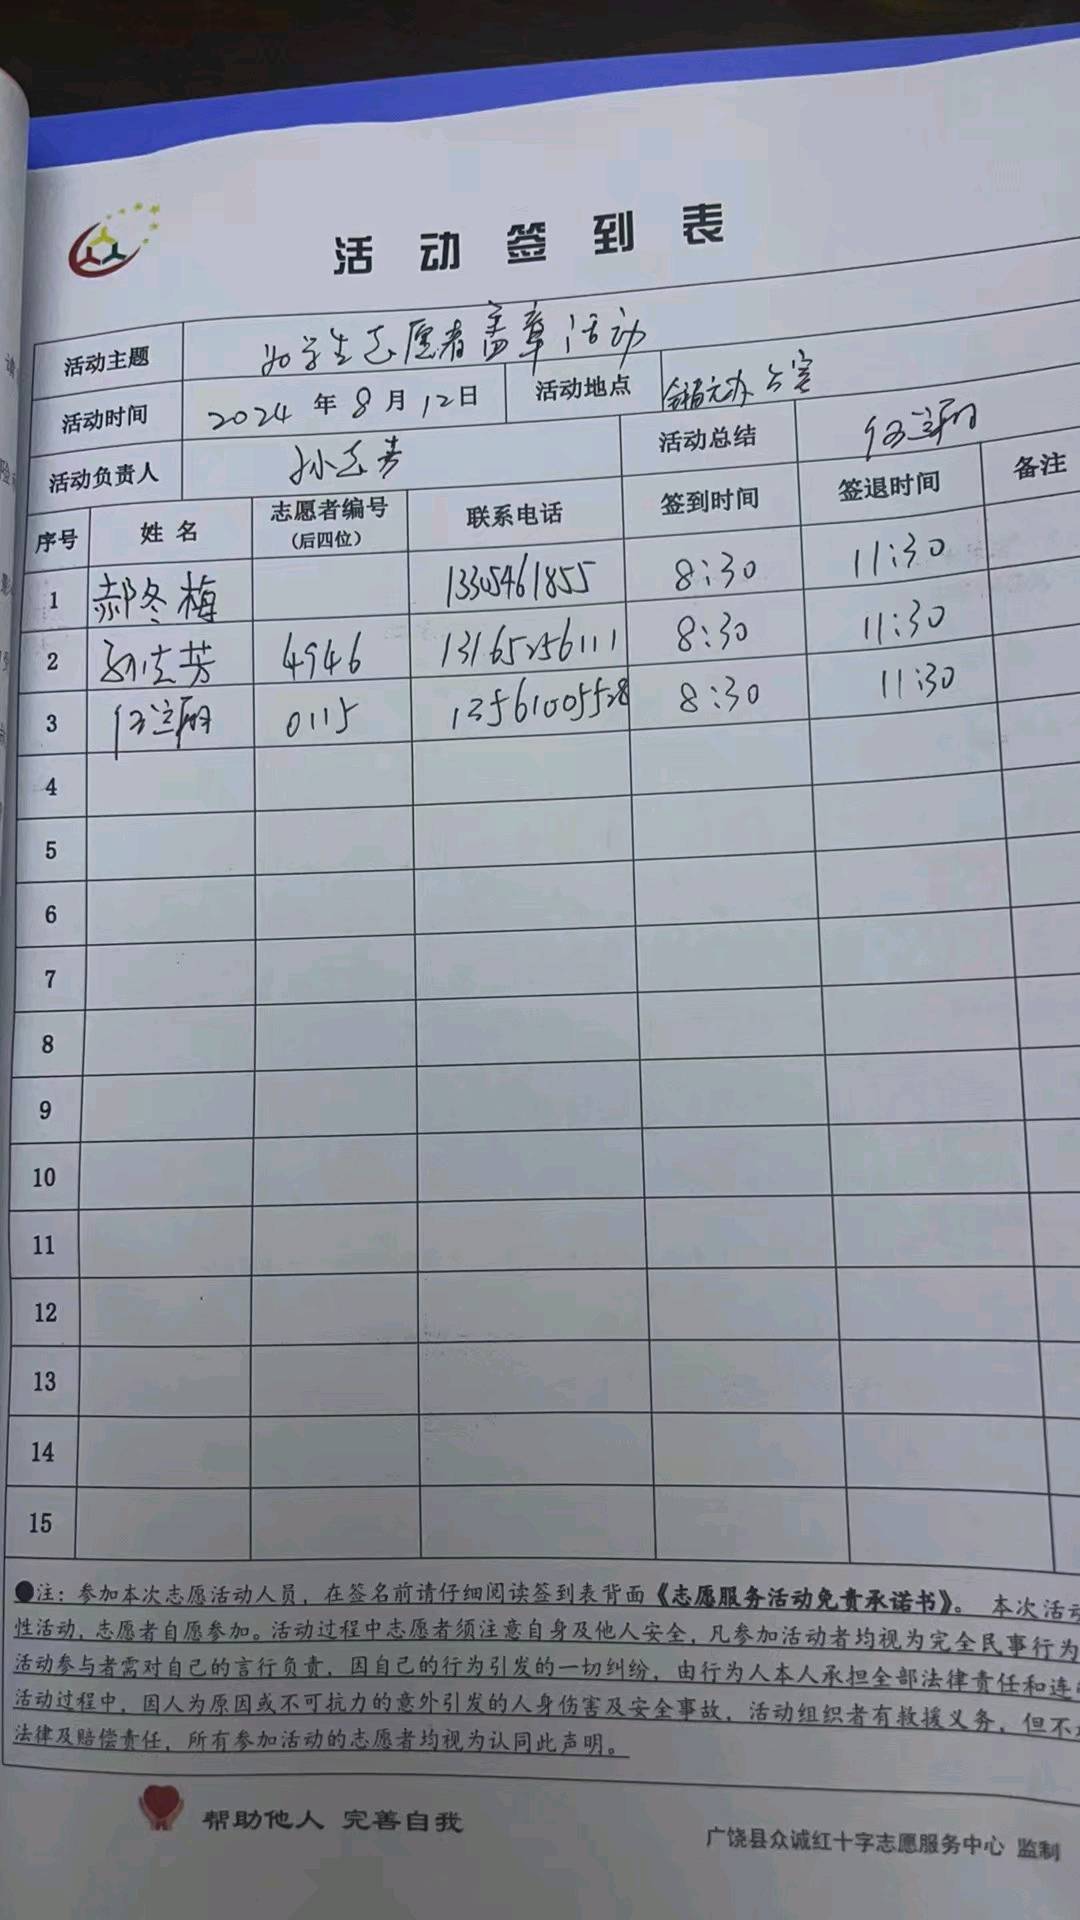 活动签到表
活动主题 为学生志愿者盖章活动
活动时间 2024年8月12日 活动地点 办公室
活动负责人 孙志芳 活动总结 任兰翔
序号 姓名 志愿者编号(后四位) 联系电话 签到时间 签退时间 备注
1 郝冬梅 13305461855 8:30 11:30
2 孙志芳 4946 13165256111 8:30 11:30
3 0115 13561005528 8:30 11:30
4
5
6
7
8
9
10
11
12
13
14
15
●注：参加本次志愿活动人员，在签名前请仔细阅读签到表背面《志愿服务活动免责承诺书》。本次活动
性活动，志愿者自愿参加。活动过程中志愿者须注意自身及他人安全，凡参加活动者均视为完全民事行为
活动参与者需对自己的言行负责，因自己的行为引发的一切纠纷，由行为人本人承担全部法律责任和连
活动过程中，因人为原因或不可抗力的意外引发的人身伤害及安全事故，活动组织者有救援义务，但不
法律及赔偿责任，所有参加活动的志愿者均视为认同此声明。
帮助他人 完善自我
广饶县众诚红十字志愿服务中心 监制